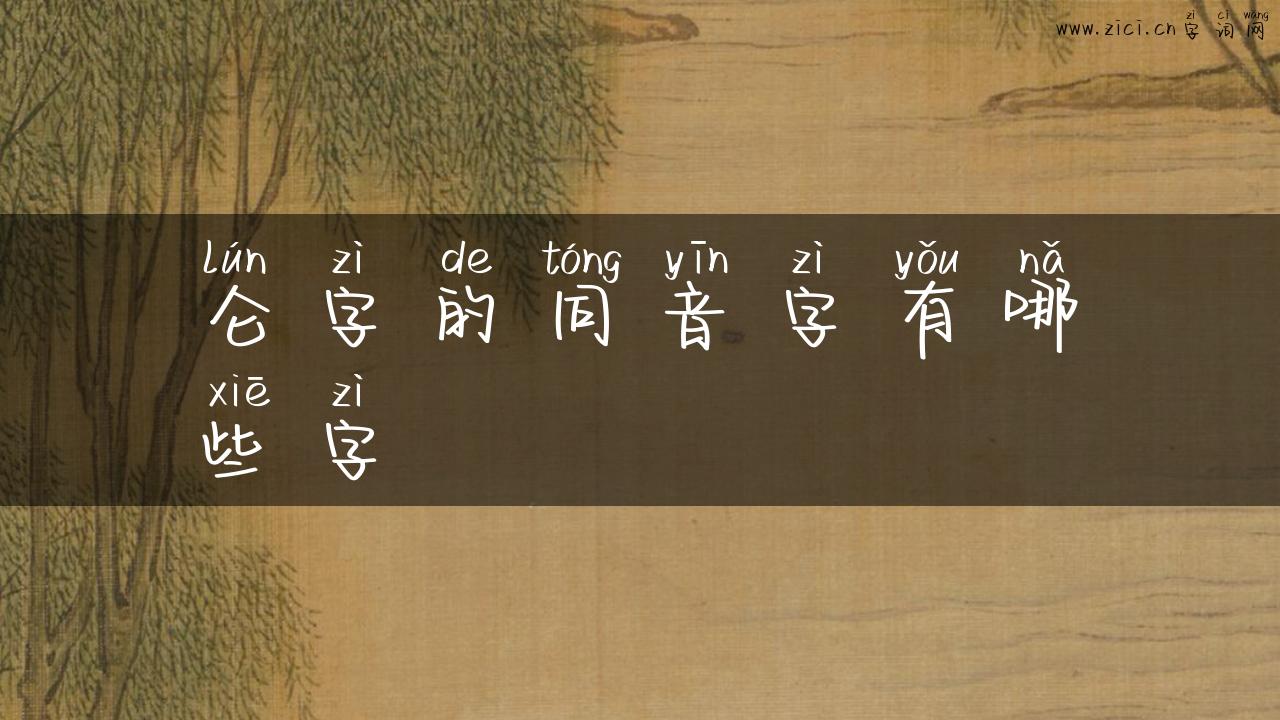 zì cí wǎng
www.zici.cn 字词网
lún zì de tóng yīn zì yǒu nǎ
仑字的同音字有哪
xiē zì
些字